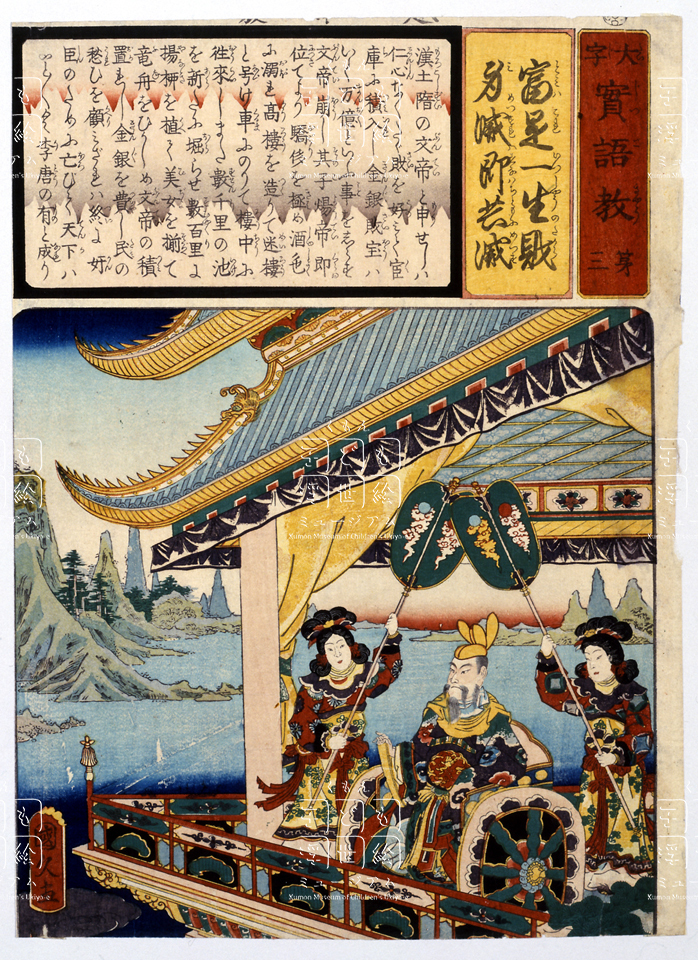 大字
實語教
苐三
富是一生財
身滅即共滅
漢土隋の文帝と申せしハ
仁心ありて
庫に積入れし金銀財宝ハ
いく万億といふ事をしらず
文帝崩じ其子煬帝即
位てより驕侈を極め酒色
に溺れ高樓を造りて迷樓
と号け車にのりて樓中に
徃來しまた數千里の池
を新に堀らせ數百里に
揚柳を植て美女を揃て
竜舟をひかしめ文帝の積
置れし金銀を費し民の
愁ひを顧ミざれハ終に奸
臣のために亡びて天下ハ
李唐の有と成り
國久画
くもん
子供浮世絵
ミュージアム
Kumon Museum of Children's Ukiyo-e